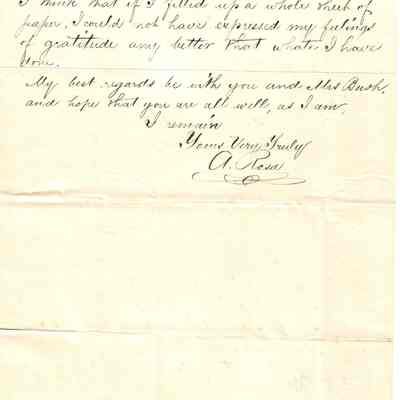 I think that if I filled up a whole sheet of
paper, I could not have expressed my feelings
of gratitude any better that what I have
done.
My best regards be with you and Mrs Bush,
and hope that you are all well, as I am.
I remain
Yours Very Truly
A. Rosa